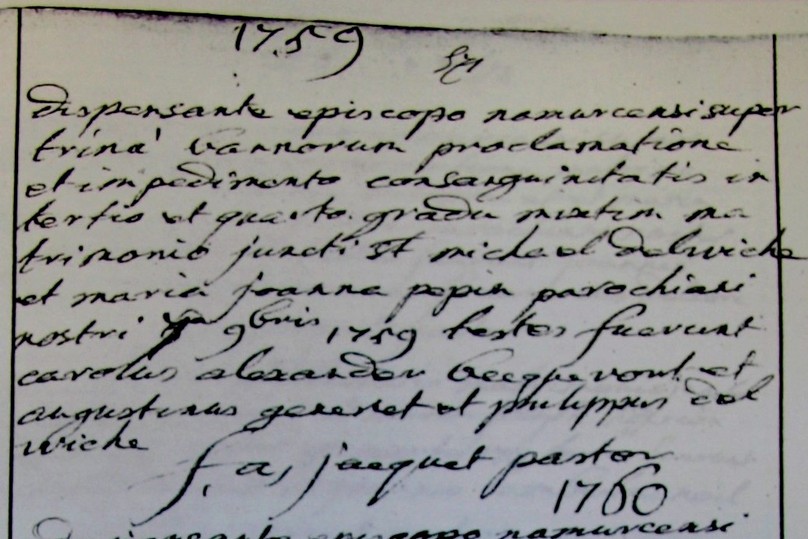 1759
57
dispensante episcopo namurcensi super
trina bannorum proclamatione
et impedimento consanguinitatis in
tertio et quarto gradu mixtim ma
trimonio juncti st michael delwiche
et maria joanna pepin parochiani
nostri 9bris 1759 testes fuerunt
carolus alexander becquevont et
augustinus generet et philippus del
wiche
f. a, jacquet pastor
1760
dispensante episcopo namurcensi